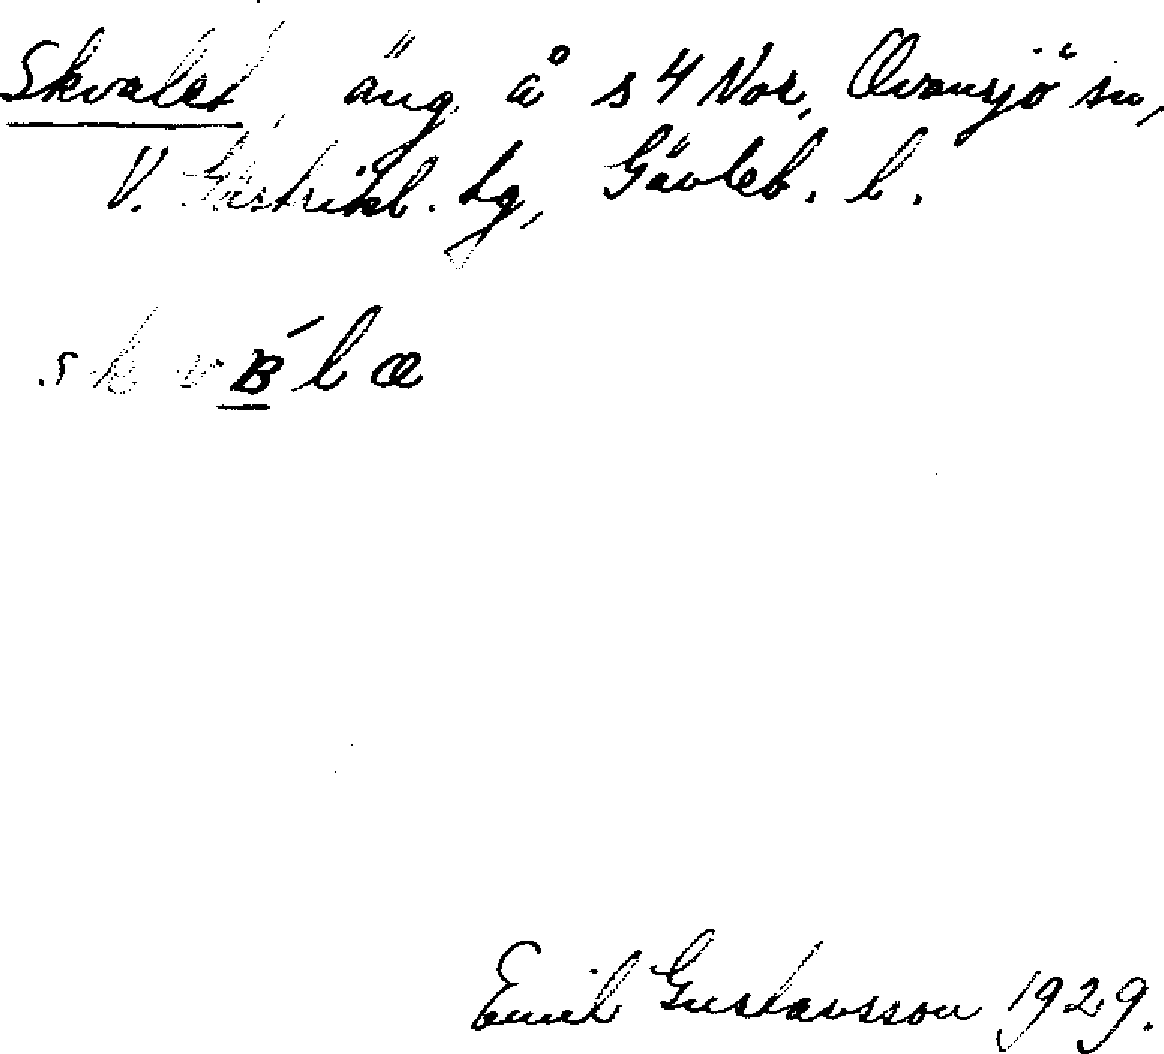 Skvalet, äng å s 4 Nor, Ovansjö sn,
V. Gästrikl. tg, Gävleb. l.
skvʙ́læ
Emil Gustavsson 1929.